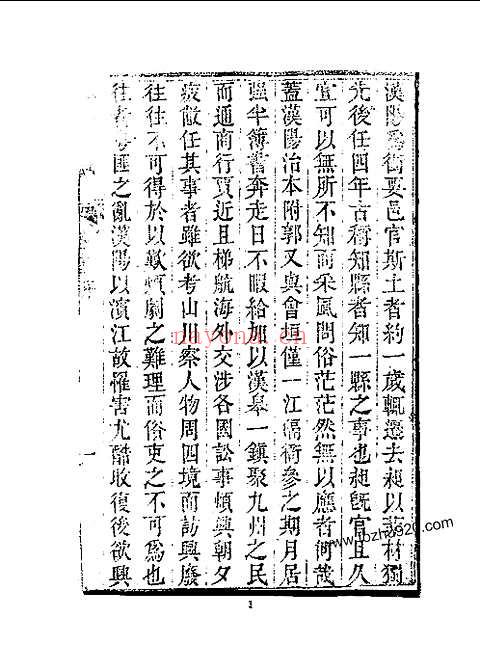 漢陽為衝要邑官斯土者約一歲輒遷去昶以菲材獨
先後任四年古稱知縣者知一縣之事也昶旣官且久
宜可以無所不知而采風問俗茫茫然無以應者何哉
蓋漢陽治本附郭又與會垣僅一江隔衙參之期月居
强半簿書奔走日不暇給加以漢皋一鎮聚九州之民
而通商行賈近且梯航海外交涉各國訟事煩興朝夕
疲敝任其事者雖欲考山川察人物周四境而訪興廢
往往不可得於以歎煩劇之難理而俗吏之不可為也
往者粵匪之亂漢陽以濱江故罹害尤酷收復後欲興
一
nayona.cn
1